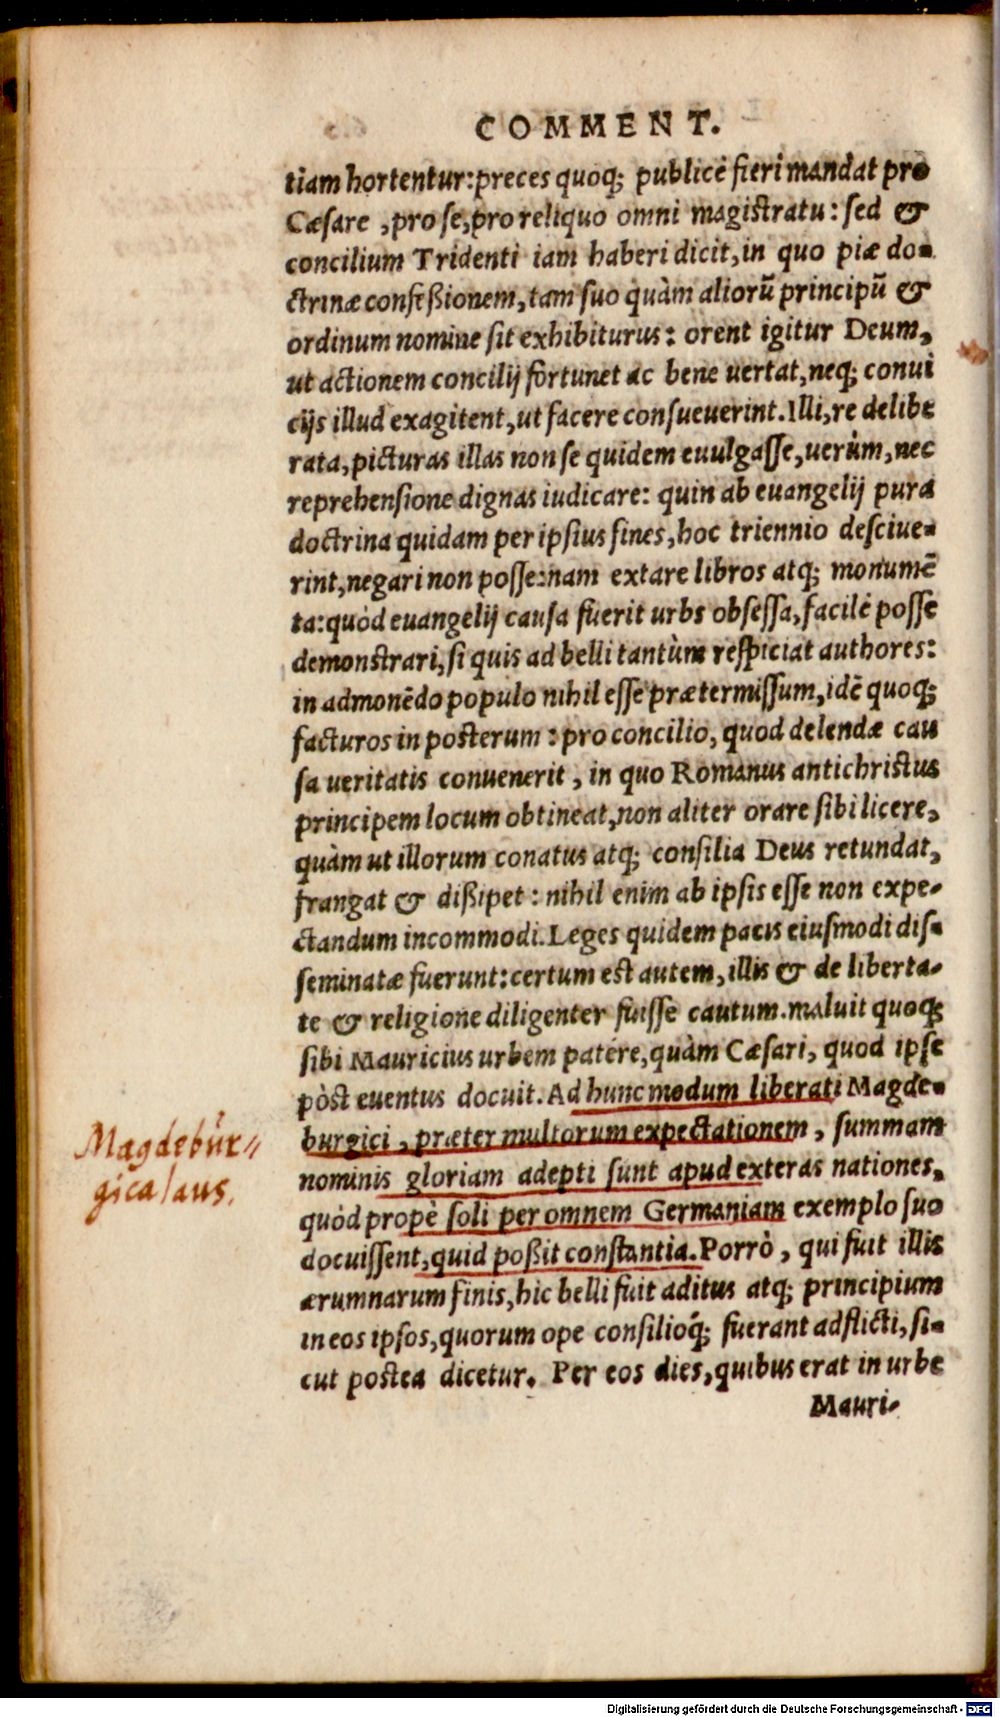 COMMENT.
tiam hortentur: preces quoq; publicè fieri mandat pro
Cæsare, pro se, pro reliquo omni magistratu: sed &
concilium Tridenti iam haberi dicit, in quo piæ do-
ctrinæ confeßionem, tam suo quàm alioru᷉ principu᷉ &
ordinum nomine sit exhibiturus: orent igitur Deum,
ut actionem concilij fortunet ac bene uertat, neq; conui
cijs illud exagitent, ut facere consueuerint. Illi, re delibe
rata, picturas illas non se quidem euulgasse, uerùm, nec
reprehensione dignas iudicare: quin ab euangelij pura
doctrina quidam per ipsius fines, hoc triennio desciue-
rint, negari non posse: nam extare libros atq; monumẽ
ta: quòd euangelij causa fuerit urbs obsessa, facilè posse
demonstrari, si quis ad belli tantùm respiciat authores:
in admonẽdo populo nihil esse prætermissum, idẽ quoq;
facturos in posterum: pro concilio, quod delendæ cau
sa ueritatis conuenerit, in quo Romanus antichristus
principem locum obtineat, non aliter orare sibi licere,
quàm ut illorum conatus atq; consilia Deus retundat,
frangat & dißipet: nihil enim ab ipsis esse non expe-
ctandum incommodi. Leges quidem pacis eiusmodi dis-
seminatæ fuerunt: certum est autem, illis & de liberta-
te & religione diligenter fuisse cautum. maluit quoq;
sibi Mauricius urbem patére, quàm Cæsari, quod ipse
pòst euentus docuit. Ad hunc modum liberati Magde-
burgici, præter multorum expectationem, summam
nominis gloriam adepti sunt apud exteras nationes,
quòd propè soli per omnem Germaniam exemplo suo
docuissent, quid poßit constantia. Porrò, qui fuit illis
ærumnarum finis, hic belli fuit aditus atq; principium
in eos ipsos, quorum ope consilioq́; fuerant adflicti, si-
cut postea dicetur. Per eos dies, quibus erat in urbe
Mauri-
Magdebur-
gica laus.
Digitalisierung gefördert durch die Deutsche Forschungsgemeinschaft - DFG